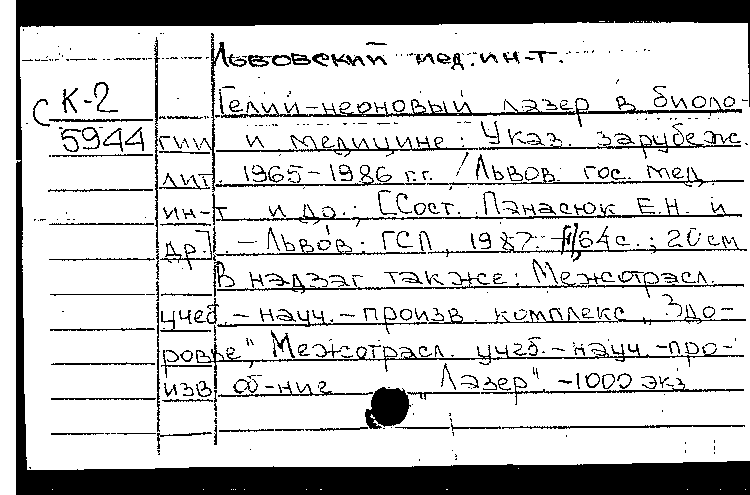 Львовский мед. ин-т.
С К-2
5944
Гелий-неоновый лазер в биоло-
гии и медицине: Указ. зарубеж.
лит. 1965-1986 г.г. / Львов. гос. мед.
ин-т и др.; [Сост. Панасюк Е.Н. и
др.]. - Львов: ГСП, 1987. - 64 с.; 20 см
В надзаг также: Межотрасл.
учеб.-науч.-произв. комплекс „Здо-
ровье", Межотрасл. учеб.-науч.-про-
изв об-ние „Лазер" -1000 экз